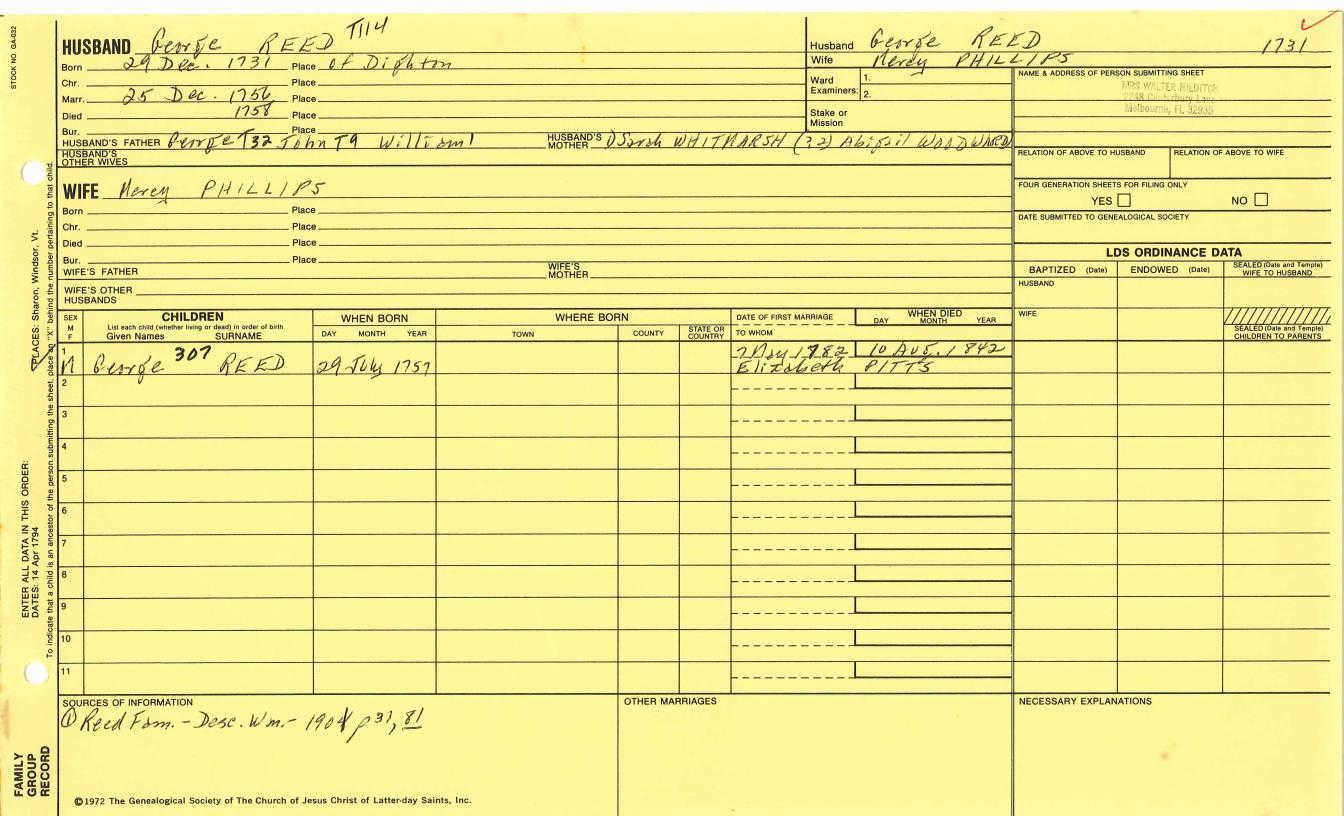 STOCK NO. GA-832
HUSBAND George REED T114
Born 29 Dec. 1731 Place of Dighton
Chr. Place
Marr. 25 Dec. 1756 Place
Died 1758 Place
Bur. Place
HUSBAND'S FATHER George T32 John T9 William1 HUSBAND'S MOTHER Sarah WHITMARSH (32) Abigail WOODWARD
HUSBAND'S OTHER WIVES
Husband George REED 1731
Wife Mercy PHILLIPS
Ward Examiners: 1.
2.
Stake or Mission
NAME & ADDRESS OF PERSON SUBMITTING SHEET
MRS WALTER HILDITCH
2248 Canterbury Lane
Melbourne, FL 32935
RELATION OF ABOVE TO HUSBAND RELATION OF ABOVE TO WIFE
FOUR GENERATION SHEETS FOR FILING ONLY
YES NO
DATE SUBMITTED TO GENEALOGICAL SOCIETY
WIFE Mercy PHILLIPS
Born Place
Chr. Place
Died Place
Bur. Place
WIFE'S FATHER WIFE'S MOTHER
WIFE'S OTHER HUSBANDS
LDS ORDINANCE DATA
BAPTIZED (Date) ENDOWED (Date) SEALED (Date and Temple) WIFE TO HUSBAND
HUSBAND
WIFE
SEALED (Date and Temple) CHILDREN TO PARENTS
SEX M F
CHILDREN
List each child (whether living or dead) in order of birth
Given Names SURNAME
WHEN BORN
DAY MONTH YEAR
WHERE BORN
TOWN COUNTY STATE OR COUNTRY
DATE OF FIRST MARRIAGE
TO WHOM
WHEN DIED
DAY MONTH YEAR
1 M George 307 REED 29 July 1757 7 Nov 1782 10 AUG. 1842
Elizabeth PITTS
2
3
4
5
6
7
8
9
10
11
SOURCES OF INFORMATION
① Reed Fam. - Desc. Wm. - 1901 p 37, 81
OTHER MARRIAGES
NECESSARY EXPLANATIONS
©1972 The Genealogical Society of The Church of Jesus Christ of Latter-day Saints, Inc.
PLACES: Sharon, Windsor, Vt.
To indicate that a child is an ancestor of the person submitting the sheet, place an "X" behind the number pertaining to that child.
ENTER ALL DATA IN THIS ORDER:
DATES: 14 Apr 1794
FAMILY GROUP RECORD